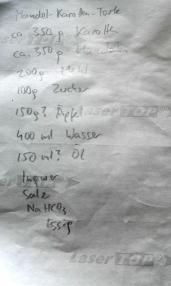 Mandel-Karotten-Torte
ca. 350g Karotten
ca. 350g Mandeln
200g Mehl
100g Zucker
150g? Äpfel
400 ml Wasser
150 ml? Öl
Ingwer
Salz
NaHCO3
Essig
LaserTOPP
LaserTOPP